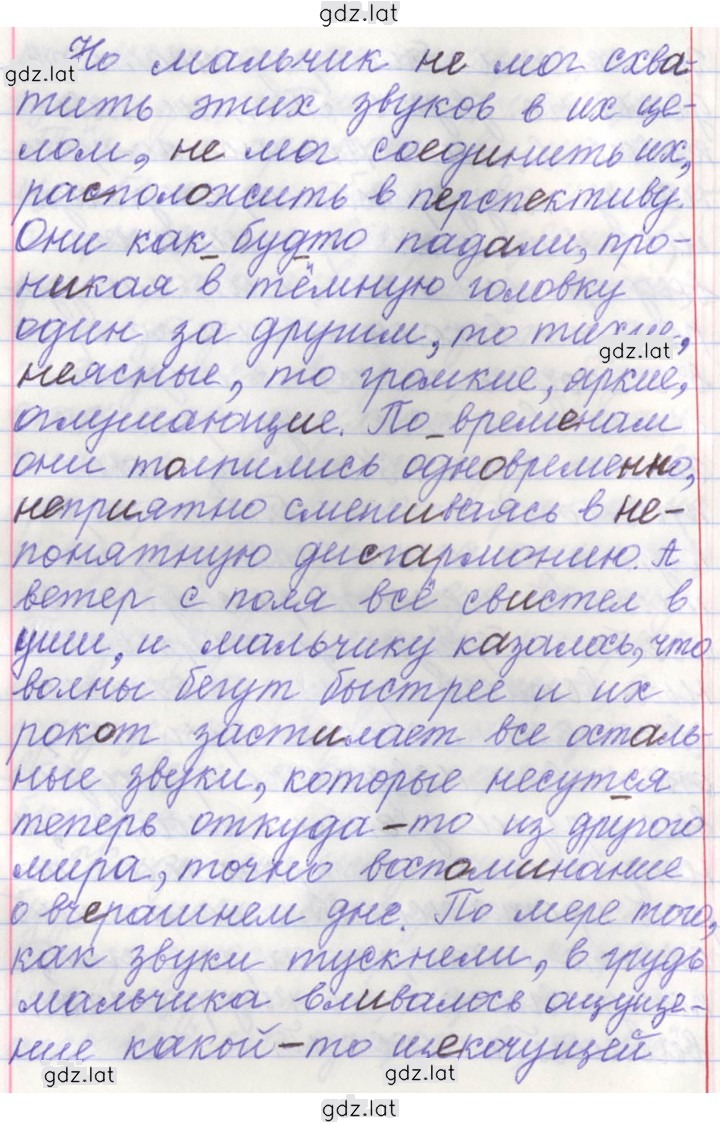 gdz.lat
Но мальчик не мог схва-
gdz.lat
тить этих звуков в их це-
лом, не мог соединить их,
расположить в перспективу.
Они как будто падали, про-
никая в тёмную головку
один за другим, то тихие,
gdz.lat
неясные, то громкие, яркие,
оглушающие. По временам
они толпились одновременно,
неприятно смешиваясь в не-
понятную дисгармонию. А
ветер с поля всё свистел в
уши, и мальчику казалось, что
волны бегут быстрее и их
рокот застилает все осталь-
ные звуки, которые несутся
теперь откуда-то из другого
мира, точно воспоминание
о вчерашнем дне. По мере того,
как звуки тускнели, в грудь
мальчика вливалось ощуще-
ние какой-то щекочущей
gdz.lat gdz.lat
gdz.lat